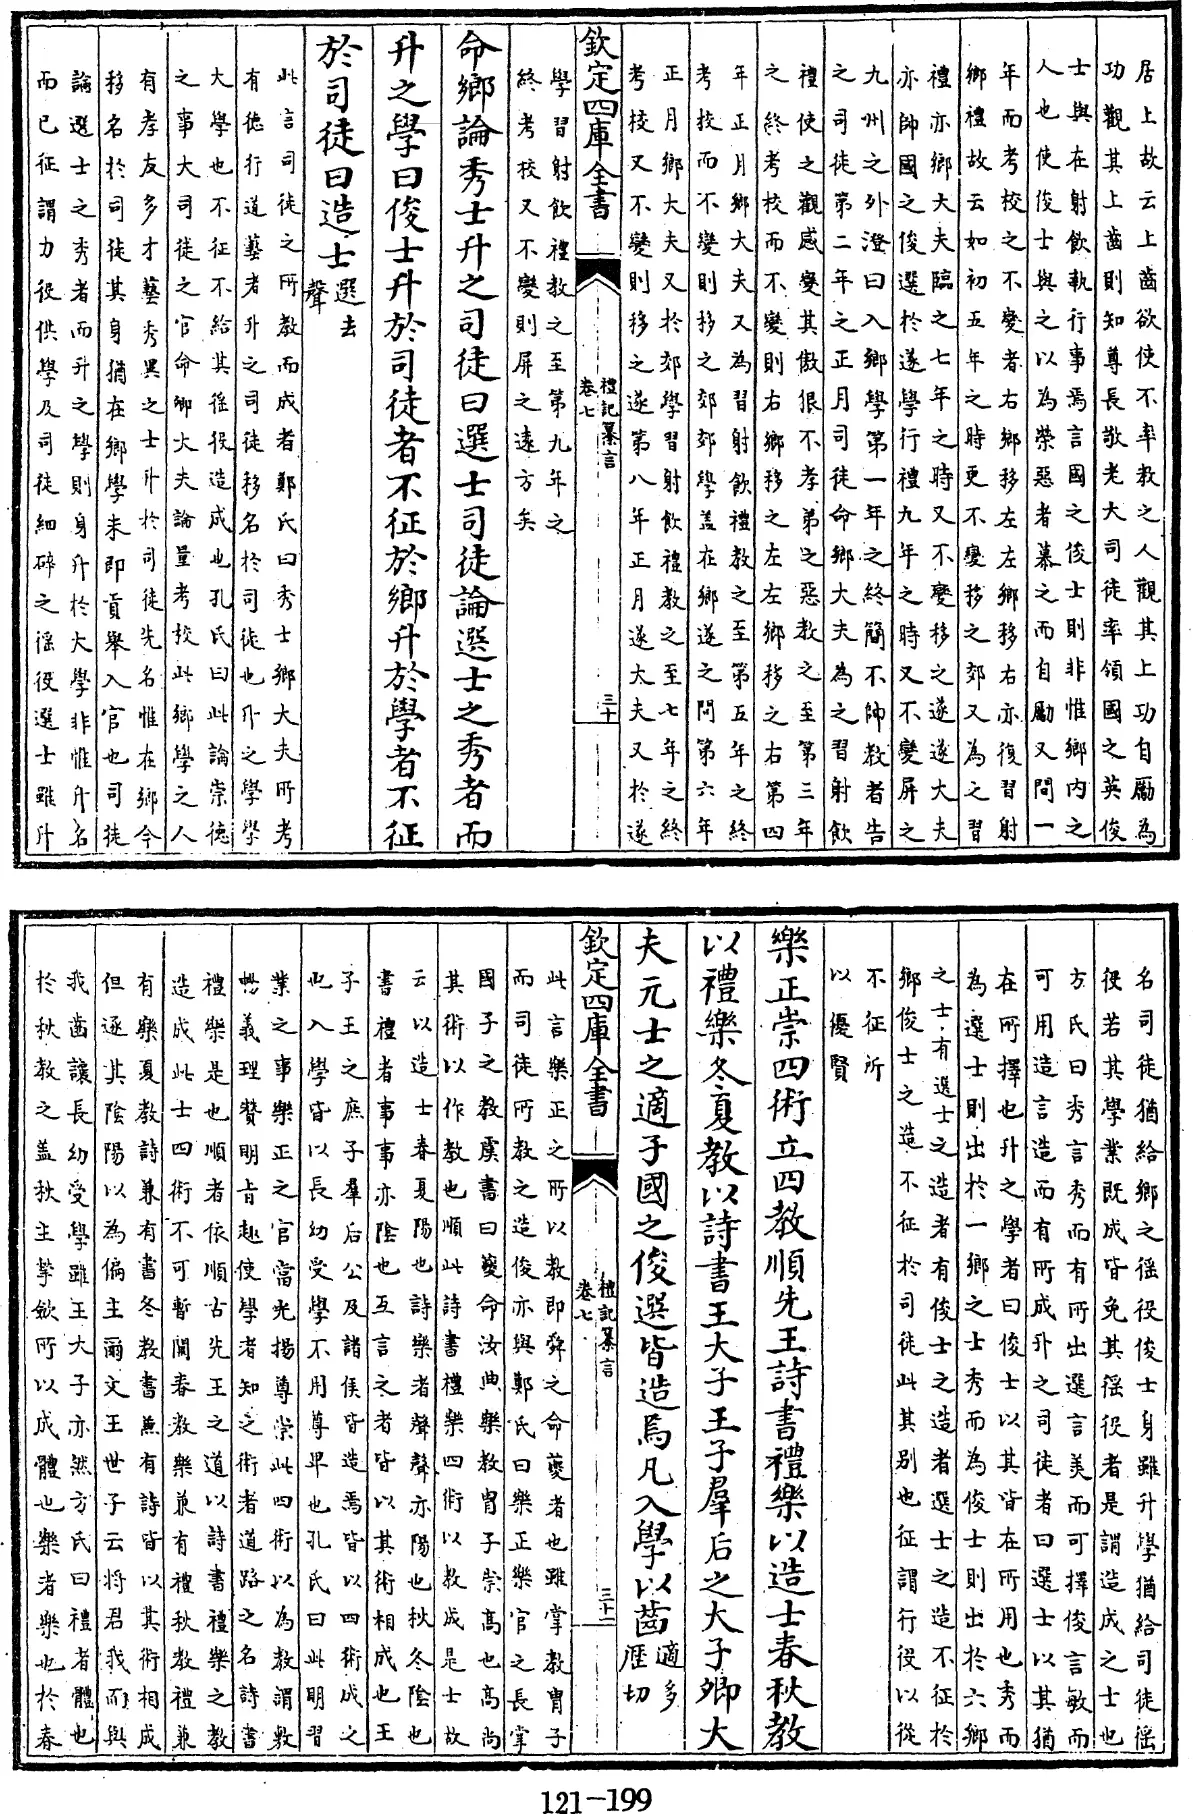 居上故云上齒欲使不率教之人觀其上功自勵為
功觀其上齒則知尊長敬老大司徒率領國之英俊
士與在射飲執行事焉言國之俊士則非惟鄉内之
人也使俊士與之以為榮惡者慕之而自勵又問一
年而考校之不變者右鄉移左左鄉移右亦復習射
鄉禮故云如初五年之時更不變移之郊又為之習
禮亦鄉大夫臨之七年之時又不變移之遂遂大夫
亦帥國之俊選於遂學行禮九年之時又不變屏之
九州之外澄曰入鄉學第一年之終簡不帥教者告
之司徒第二年之正月司徒命鄉大夫為之習射飲
禮使之觀感變其傲狠不孝弟之惡教之至第三年
之終考校而不變則右鄉移之左左鄉移之右第四
年正月鄉大夫又為習射飲禮教之至第五年之終
考校而不變則移之郊郊學盖在鄉遂之間第六年
正月鄉大夫又於郊學習射飲禮教之至七年之終
考校又不變則移之遂第八年正月遂大夫又於遂
欽定四庫全書
禮記纂言
卷七
三十
學習射飲禮教之至第九年之
終考校又不變則屏之遠方矣
命鄉論秀士升之司徒曰選士司徒論選士之秀者而
升之學曰俊士升於司徒者不征於鄉升於學者不征
於司徒曰造士選去聲
此言司徒之所教而成者鄭氏曰秀士鄉大夫所考
有德行道藝者升之司徒移名於司徒也升之學學
大學也不征不給其徭役造成也孔氏曰此論崇德
之事大司徒之官命鄉大夫論量考校此鄉學之人
有孝友多才藝秀異之士升於司徒先名惟在鄉今
移名於司徒其身猶在鄉學未即貢舉入官也司徒
論選士之秀者而升之學則身升於大學非惟升名
而已征謂力役供學及司徒細碎之徭役選士雖升
名司徒猶給鄉之徭役俊士身雖升學猶給司徒徭
役若其學業既成皆免其徭役者是謂造成之士也
方氏曰秀言秀而有所出選言美而可擇俊言敏而
可用造言造而有所成升之司徒者曰選士以其猶
在所擇也升之學者曰俊士以其皆在所用也秀而
為選士則出於一鄉之士秀而為俊士則出於六鄉
之士有選士之造者有俊士之造者選士之造不征於
鄉俊士之造不征於司徒此其别也征謂行役以從
不征所
以優賢
樂正崇四術立四教順先王詩書禮樂以造士春秋教
以禮樂冬夏教以詩書王大子王子羣后之大子卿大
夫元士之適子國之俊選皆造焉凡入學以齒適多歴切
欽定四庫全書
禮記纂言
卷七
三十一
此言樂正之所以教即舜之命夔者也雖掌教胄子
而司徒所教之造俊亦與鄭氏曰樂正樂官之長掌
國子之教虞書曰夔命汝典樂教胄子崇髙也髙尚
其術以作教也順此詩書禮樂四術以教成是士故
云以造士春夏陽也詩樂者聲聲亦陽也秋冬陰也
書禮者事事亦陰也互言之者皆以其術相成也王
子王之庶子羣后公及諸侯皆造焉皆以四術成之
也入學皆以長幼受學不用尊卑也孔氏曰此明習
業之事樂正之官當光揚尊崇此四術以為教謂敷
暢義理贊明㫖趣使學者知之術者道路之名詩書
禮樂是也順者依順古先王之道以詩書禮樂之教
造成此士四術不可暫闕春教樂兼有禮秋教禮兼
有樂夏教詩兼有書冬教書兼有詩皆以其術相成
但逐其陰陽以為偏主爾文王世子云將君我而與
我齒讓長幼受學雖王大子亦然方氏曰禮者體也
於秋教之盖秋主揫斂所以成體也樂者樂也於春
121-199